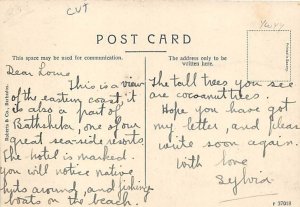 CUT
POST CARD
This space may be used for communication.
The address only to be
written here.
Dear Lorne
This is a view
of the eastern coast, it
is also a part of
Bathsheba, one of our
great seaside resorts.
The hotel is marked.
You will notice native
huts around, and fishing
boats on the beach.
The tall trees you see
are cocoanut trees.
Hope you have got
my letter, and please
write soon again.
With love
Sylvia
& Co., Barbados.
F 37018